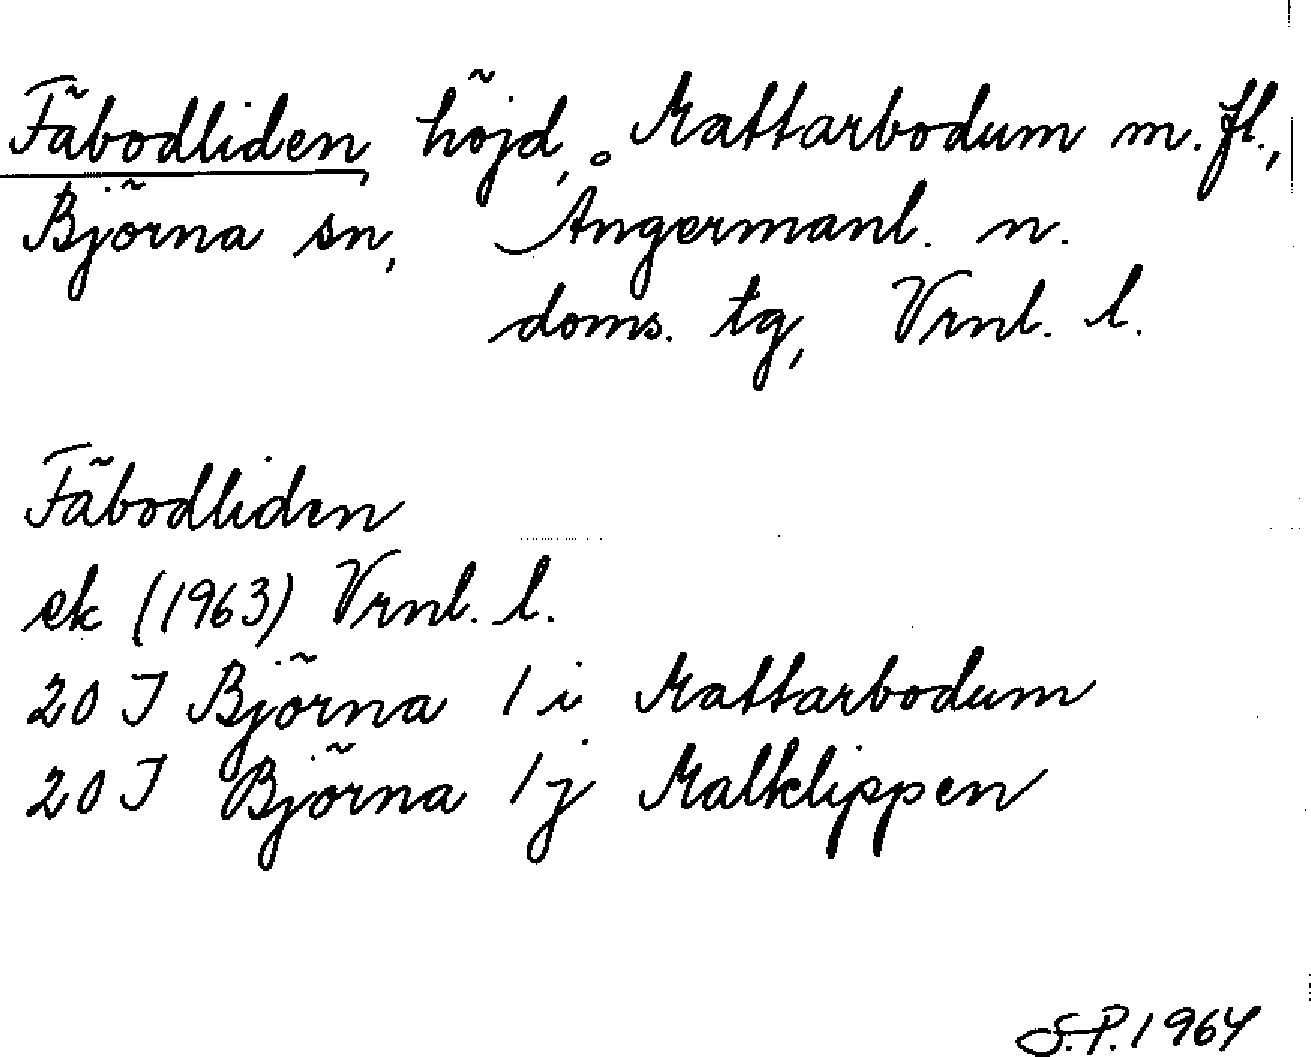 Fäbodliden, höjd, Mattarbodum m. fl.,
Björna sn, Ångermanl. n.
doms. tg, Vrnl. l.
Fäbodliden
ek (1963) Vrnl. l.
20 I Björna 1 i Mattarbodum
20 I Björna 1 j Malklippen
S.P. 1964